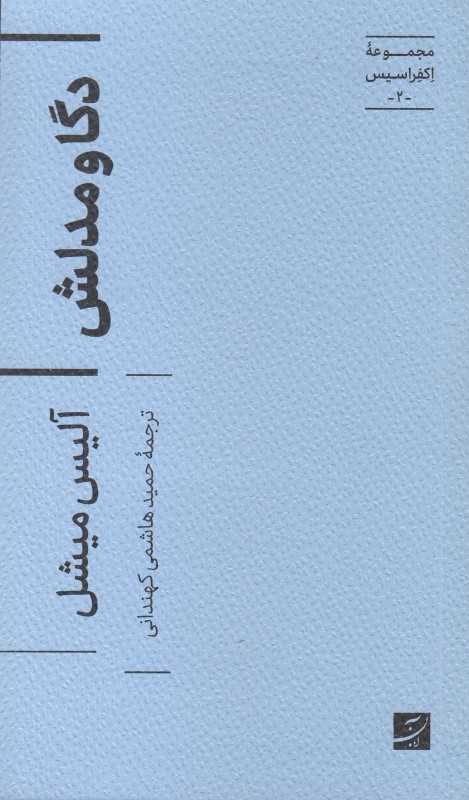 مجموعهٔ
اِکفِراسیس
-۲-
دگا و مدلش
آلیس میشل
ترجمهٔ حمید هاشمی کهندانی
آبان